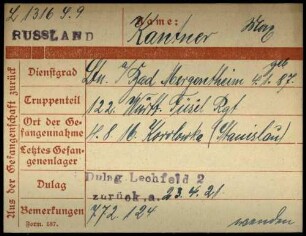 L 1316 Y. 9
Name:
RUSSLAND
Kantner Max
Aus der Gefangenschaft zurück
Dienstgrad Ltn. Bad Mergentheim 4.1.87.
geb
Truppenteil 122. Württ. Füsel Rgt
Ort der Ge-
fangennahme 4.8.16. (Stanislau)
Letztes Gefan-
genenlager
Dulag Dulag Lechfeld 2
zurück a. 23.4.21
Bemerkungen 772 124
Form. 187.
wenden